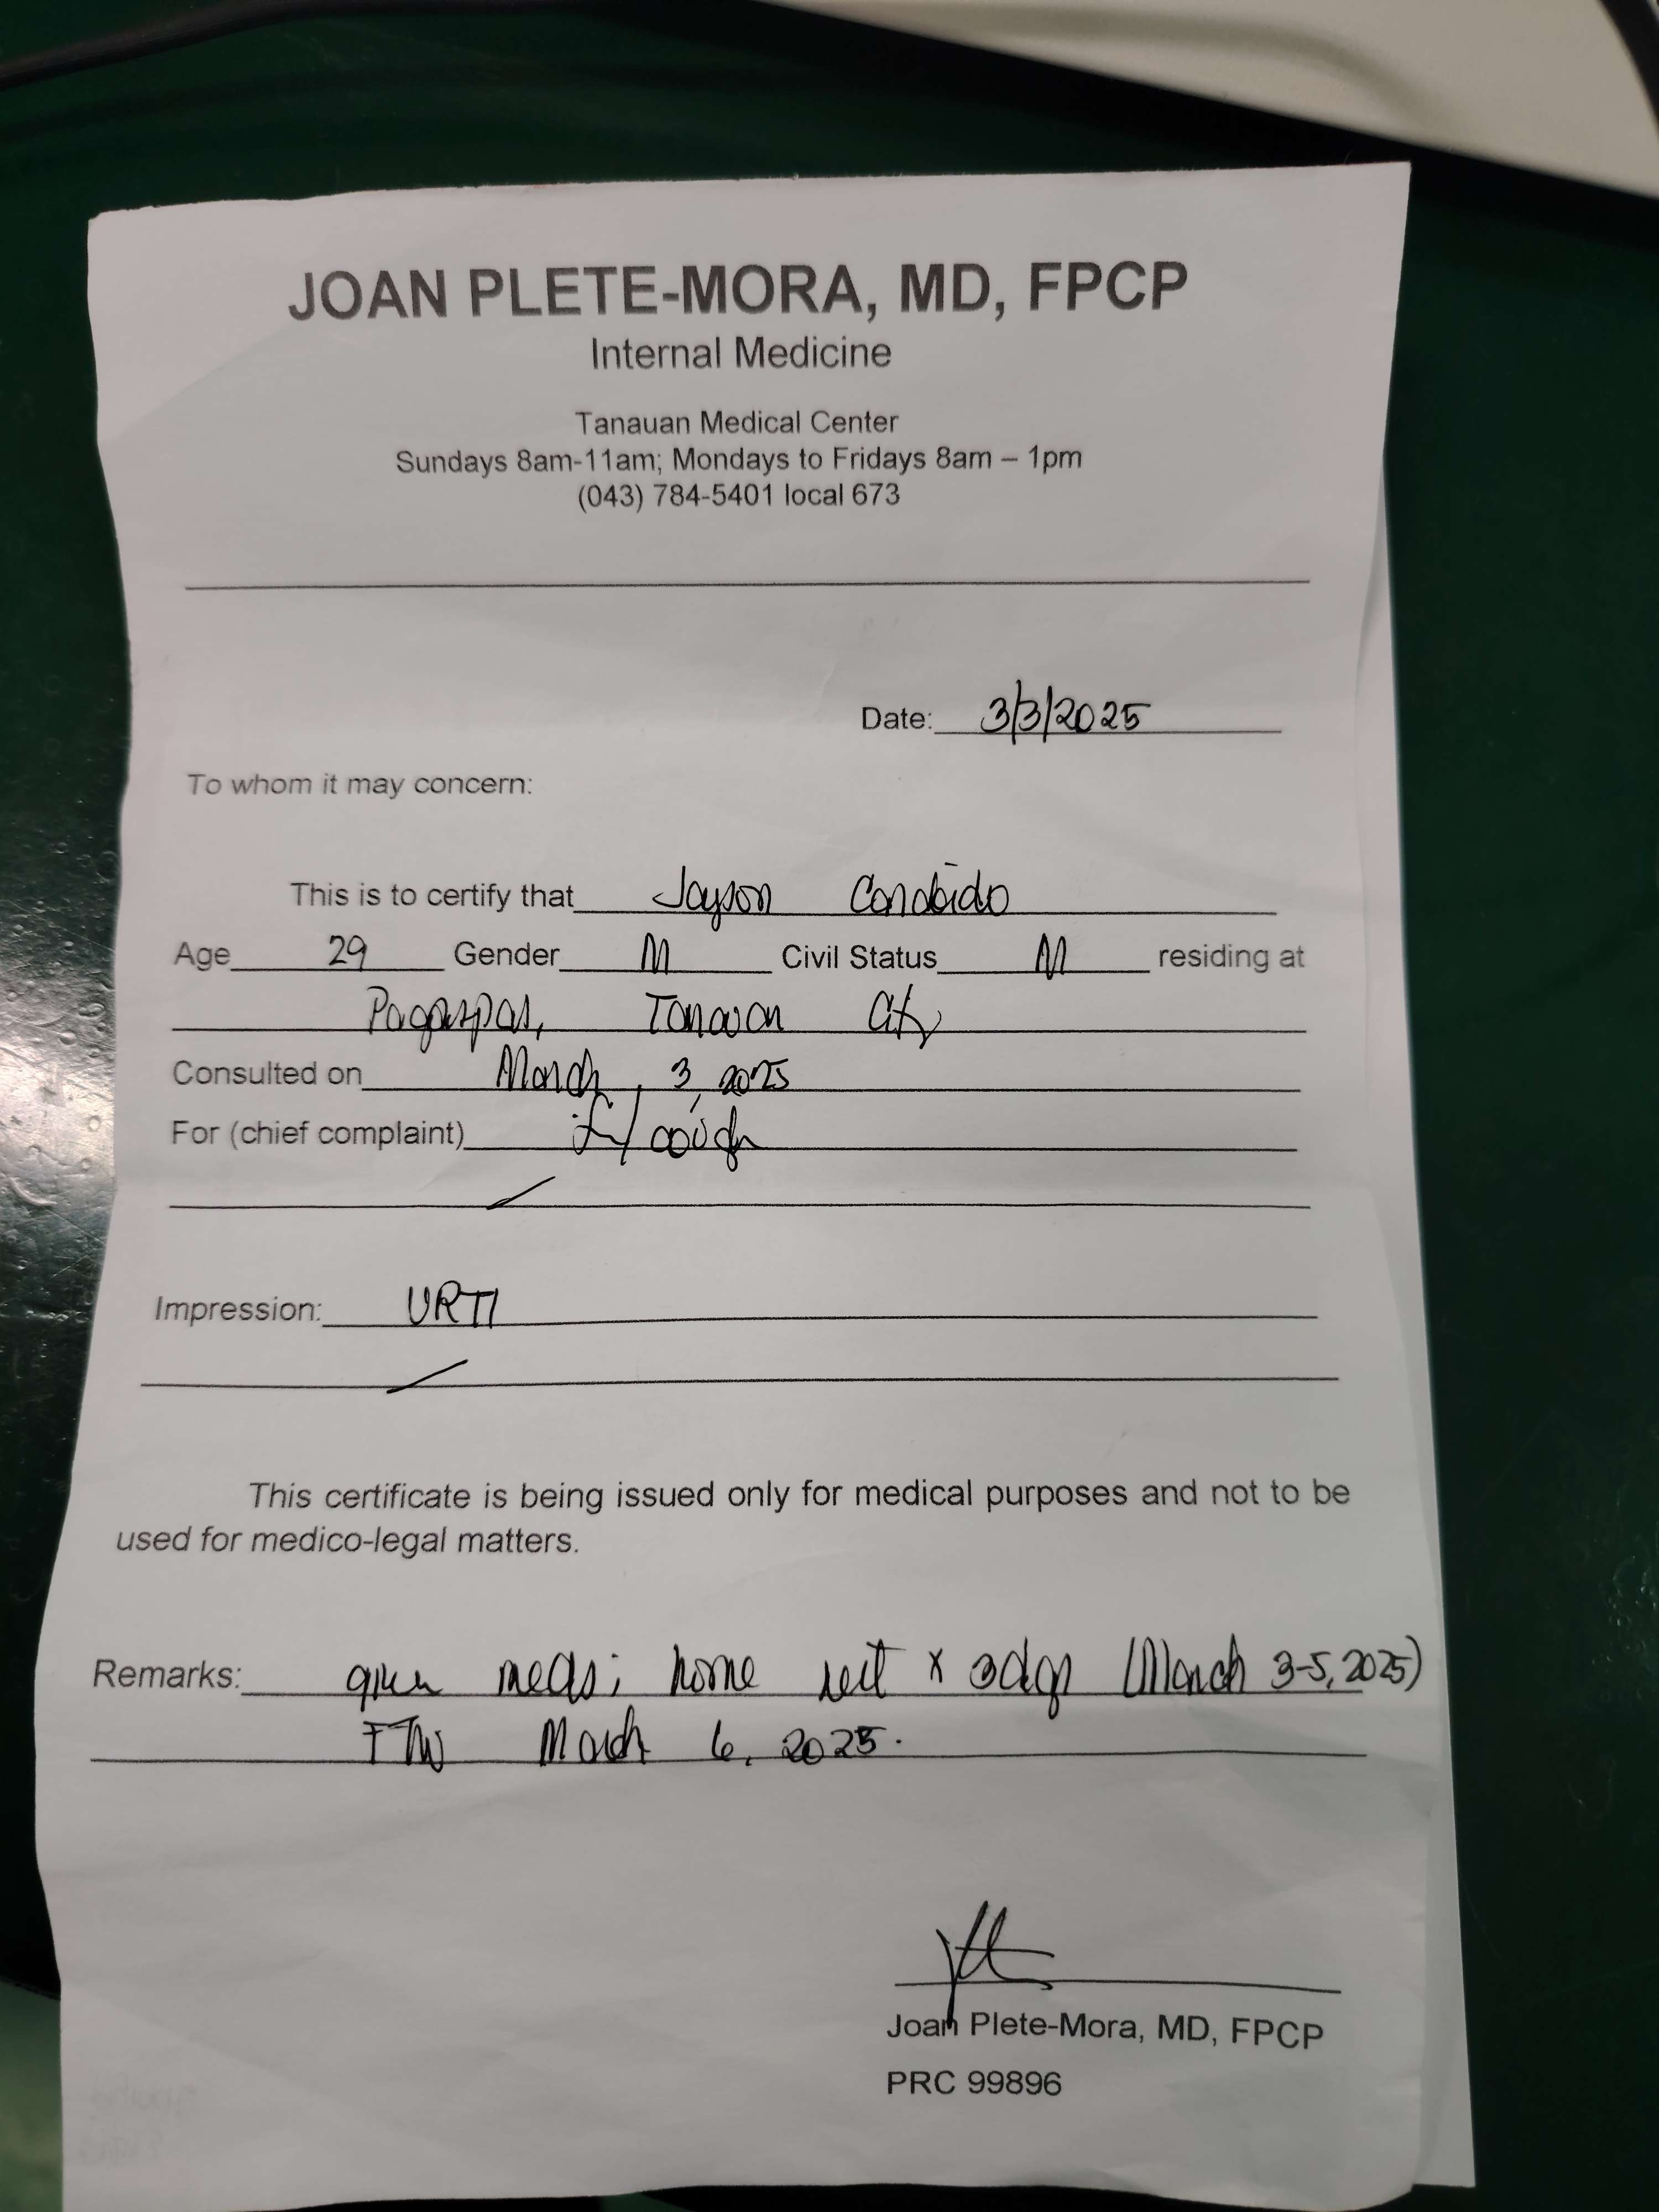 JOAN PLETE-MORA, MD, FPCP
Internal Medicine
Tanauan Medical Center
Sundays 8am-11am; Mondays to Fridays 8am – 1pm
(043) 784-5401 local 673
Date: 3/3/2025
To whom it may concern:
This is to certify that Jayson Candido
Age 29 Gender M Civil Status M residing at
Pagaspas, Tanauan City
Consulted on March, 3, 2025
For (chief complaint) cough
Impression: URTI
This certificate is being issued only for medical purposes and not to be
used for medico-legal matters.
Remarks: given meds; home rest x 3days (March 3-5, 2025)
FTW March 6, 2025.
Joan Plete-Mora, MD, FPCP
PRC 99896